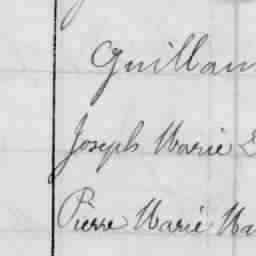 Guillau
Joseph Marie
Pierre Marie Ma